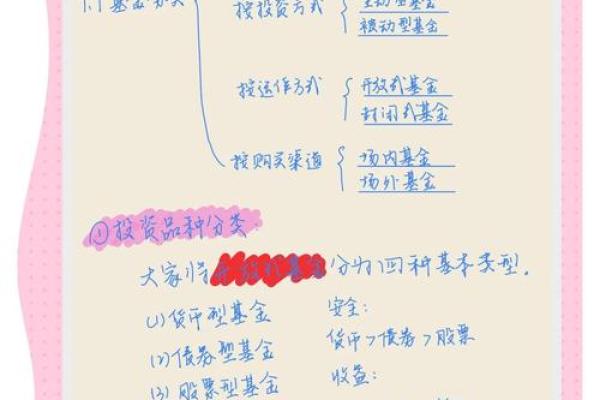 1.1 基金分类
按投资方式
主动型基金
被动型基金
按运作方式
开放式基金
封闭式基金
按购买渠道
场内基金
场外基金
①投资品种分类
大家将开放式基金分为四种基本类型.
(1)货币型基金
安全:
货币>债券>股票
(2)债券型基金
收益:
(3)股票型基金